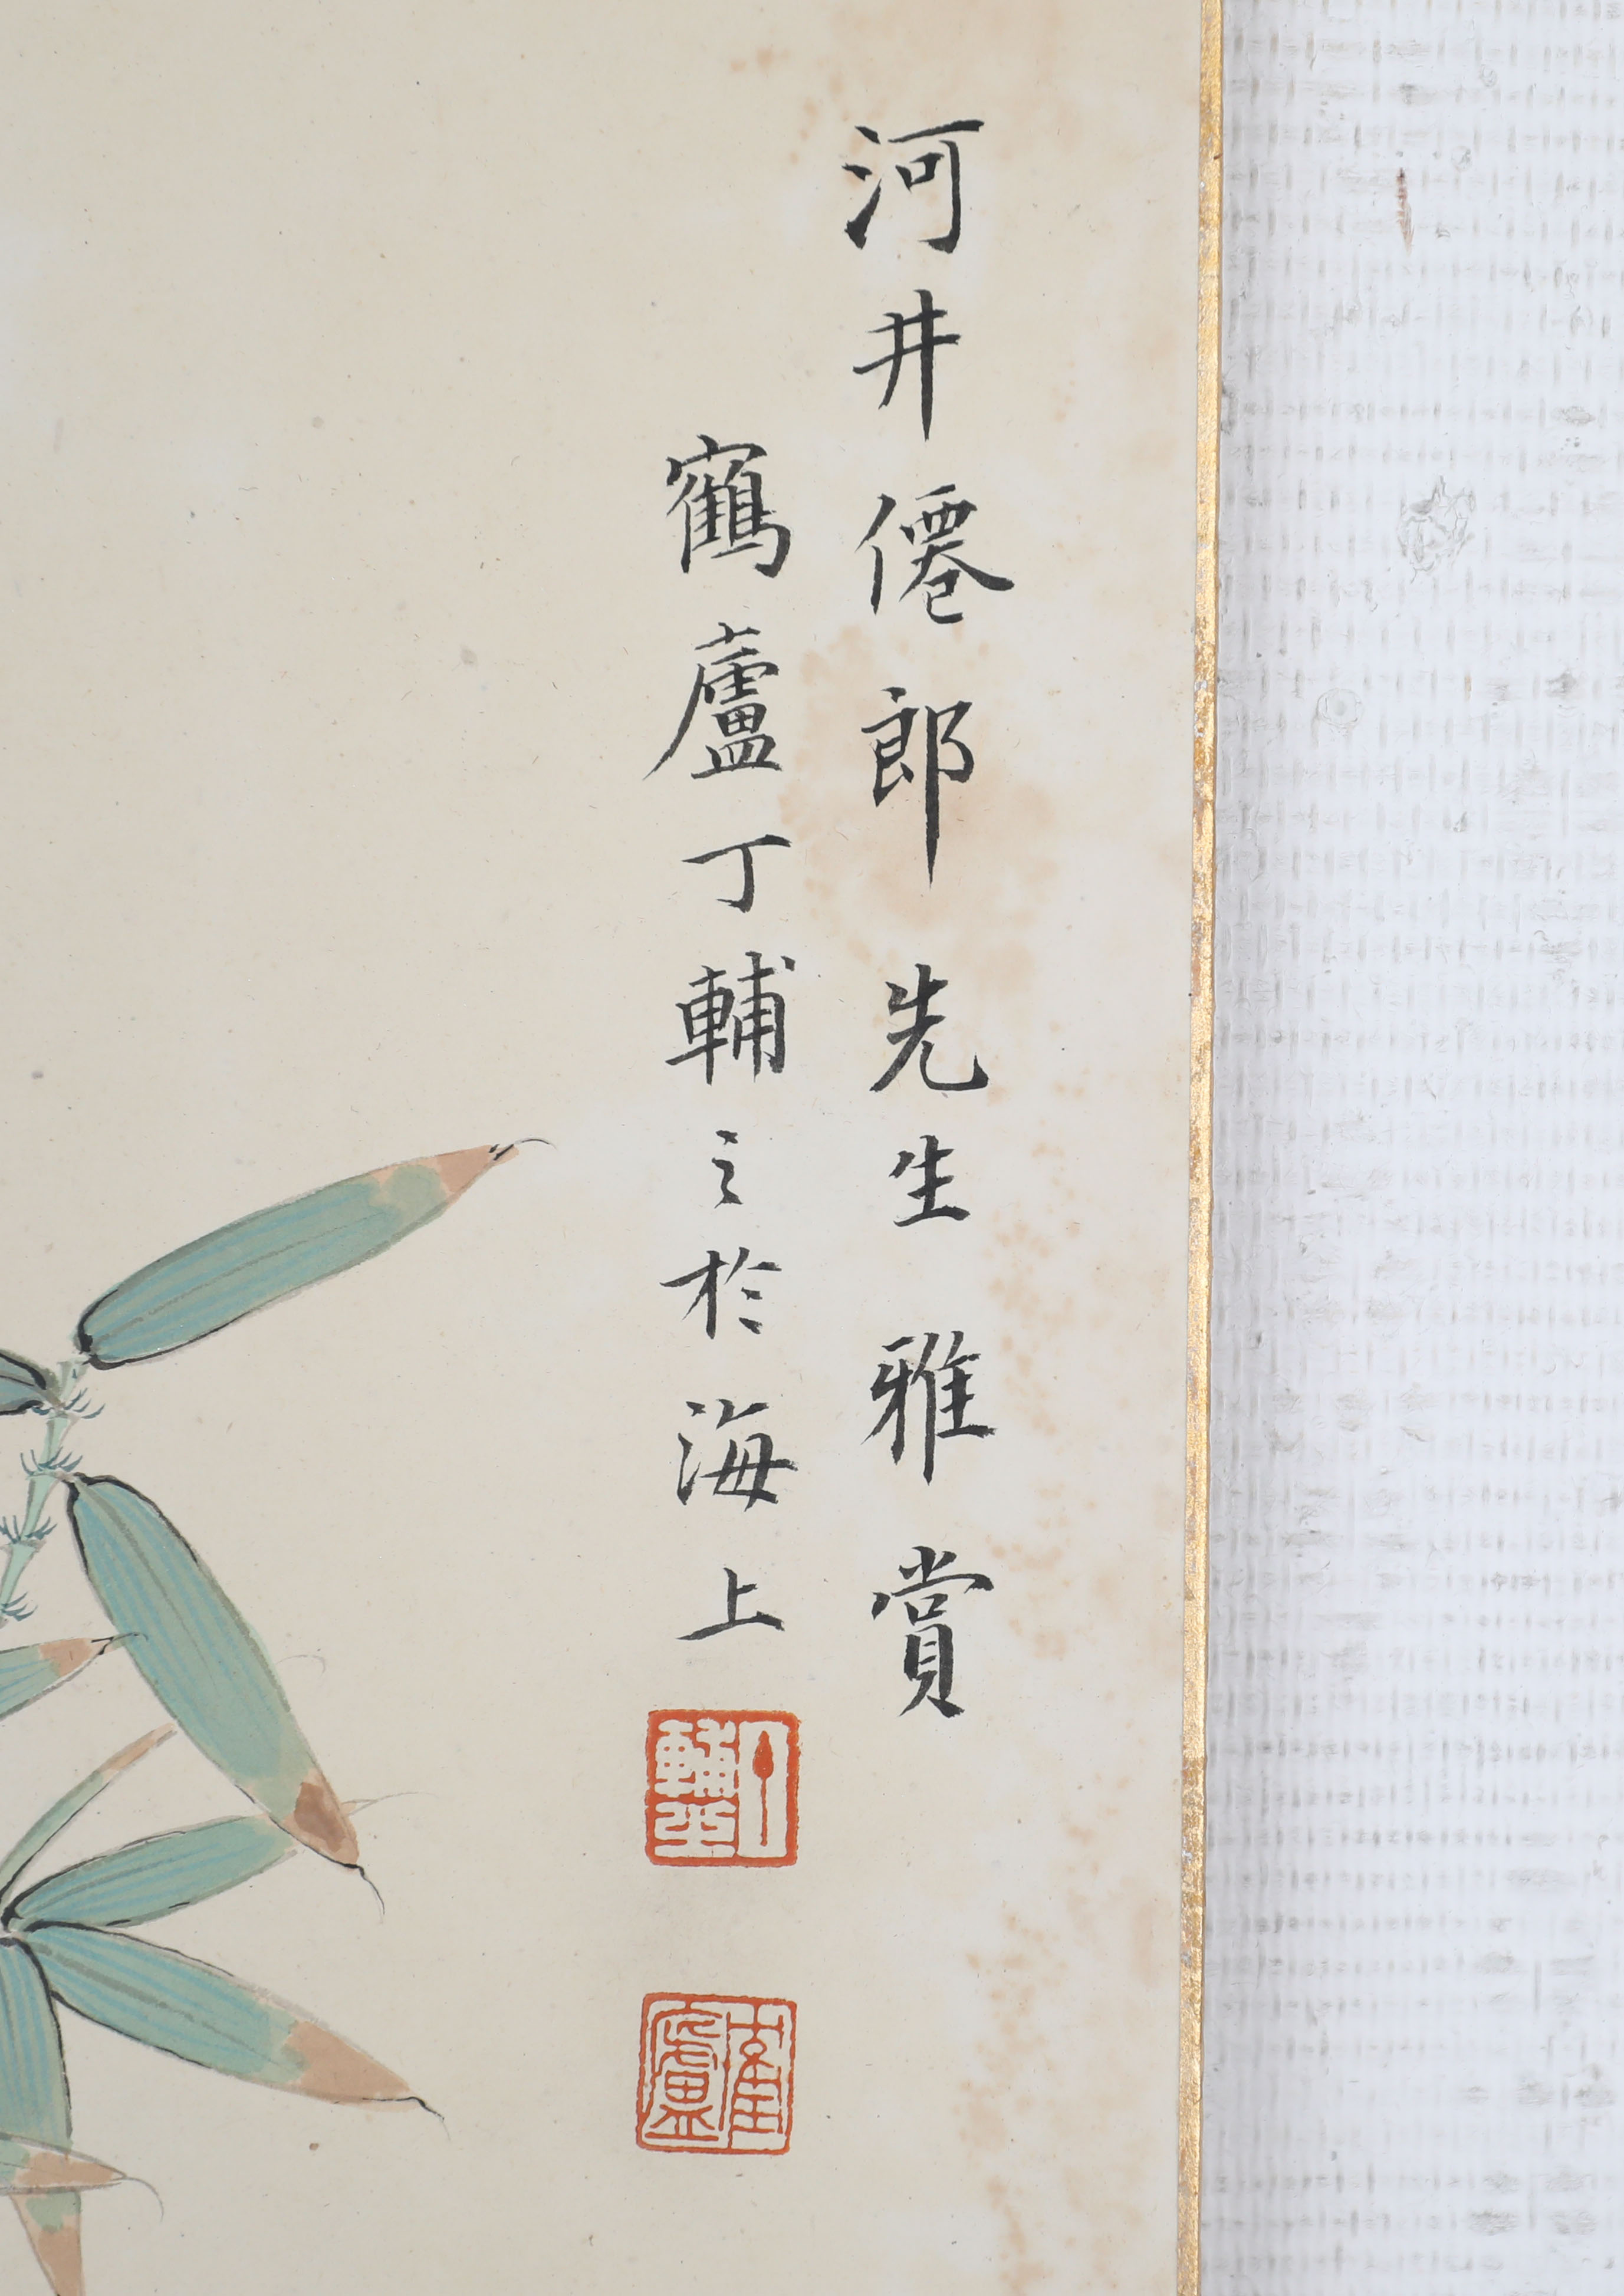 河井僊郎先生雅賞
鶴廬丁輔之於海上
丁輔之